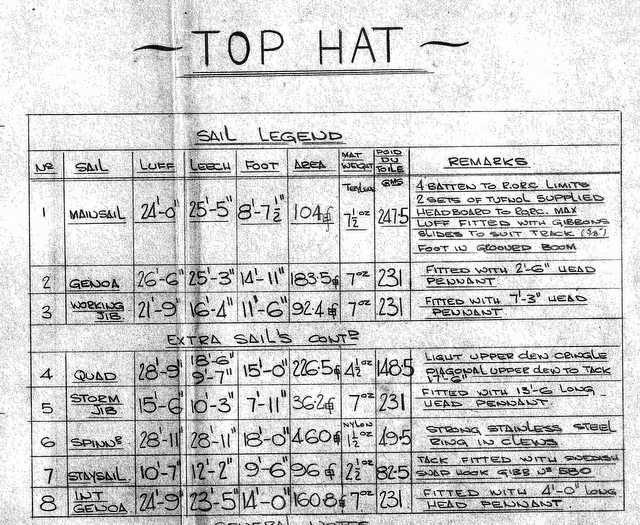 ~ TOP HAT ~
SAIL LEGEND
Nº SAIL LUFF LEECH FOOT AREA MAT WEIGHT POID DU TOILE REMARKS
1 MAINSAIL 24'-0" 25'-5" 8'-7½" 104 Terylene 7½oz GMS 247.5 4 BATTEN TO R.O.R.C LIMITS
2 SETS OF TUFNOL SUPPLIED
HEADBOARD TO R.O.R.C. MAX
LUFF FITTED WITH GIBBONS
SLIDES TO SUIT TRACK (⅝")
FOOT IN GROOVED BOOM
2 GENOA 26'-6" 25'-3" 14'-11" 183.5 7oz 231 FITTED WITH 2'-6" HEAD
PENNANT
3 WORKING JIB 21'-9" 16'-4" 11'-6" 92.4 7oz 231 FITTED WITH 7'-3" HEAD
PENNANT
EXTRA SAIL'S CONTD
4 QUAD 28'-9" 18'-6" 9'-7" 15'-0" 226.5 4½oz 148.5 LIGHT UPPER CLEW CRINGLE
DIAGONAL UPPER CLEW TO TACK
17'-6"
5 STORM JIB 15'-6" 10'-3" 7'-11" 36.2 7oz 231 FITTED WITH 13'-6 LONG
HEAD PENNANT
6 SPINNR 28'-11" 28'-11" 18'-0" 460 NYLON 1½oz 49.5 STRONG STAINLESS STEEL
RING IN CLEWS
7 STAYSAIL 10'-7" 12'-2" 9'-6" 96 2½oz 82.5 TACK FITTED WITH SWEDISH
SNAP HOOK GIBB Nº 580
8 INT GENOA 24'-9" 23'-5" 14'-0" 160.8 7oz 231 FITTED WITH 4'-0" LONG
HEAD PENNANT
GENERAL NOTES